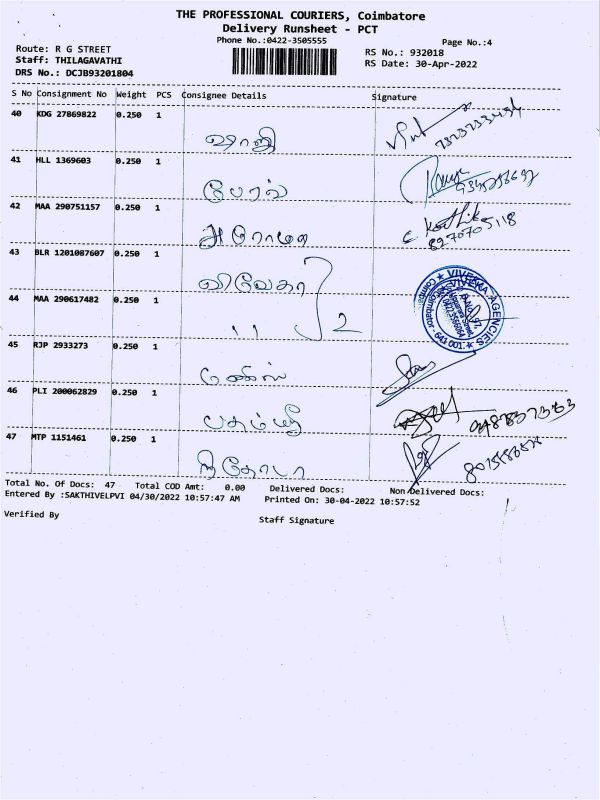 THE PROFESSIONAL COURIERS, Coimbatore
Delivery Runsheet - PCT
Phone No.:0422-3505555
Page No.:4
Route: R G STREET
RS No.: 932018
Staff: THILAGAVATHI
RS Date: 30-Apr-2022
DRS No.: DCJB93201804
S No Consignment No Weight PCS Consignee Details Signature
40 KDG 27869822 0.250 1
ஷாஜி
41 HLL 1369603 0.250 1
42 MAA 290751157 0.250 1
C. Karthik
43 BLR 1201087607 0.250 1
விவேகா
44 MAA 290617482 0.250 1
VIVEKA AGENCIES
11 2
45 RJP 2933273 0.250 1
46 PLI 200062829 0.250 1
47 MTP 1151461 0.250 1
Total No. Of Docs: 47 Total COD Amt: 0.00 Delivered Docs: Non Delivered Docs:
Entered By :SAKTHIVELPVI 04/30/2022 10:57:47 AM Printed On: 30-04-2022 10:57:52
Verified By
Staff Signature